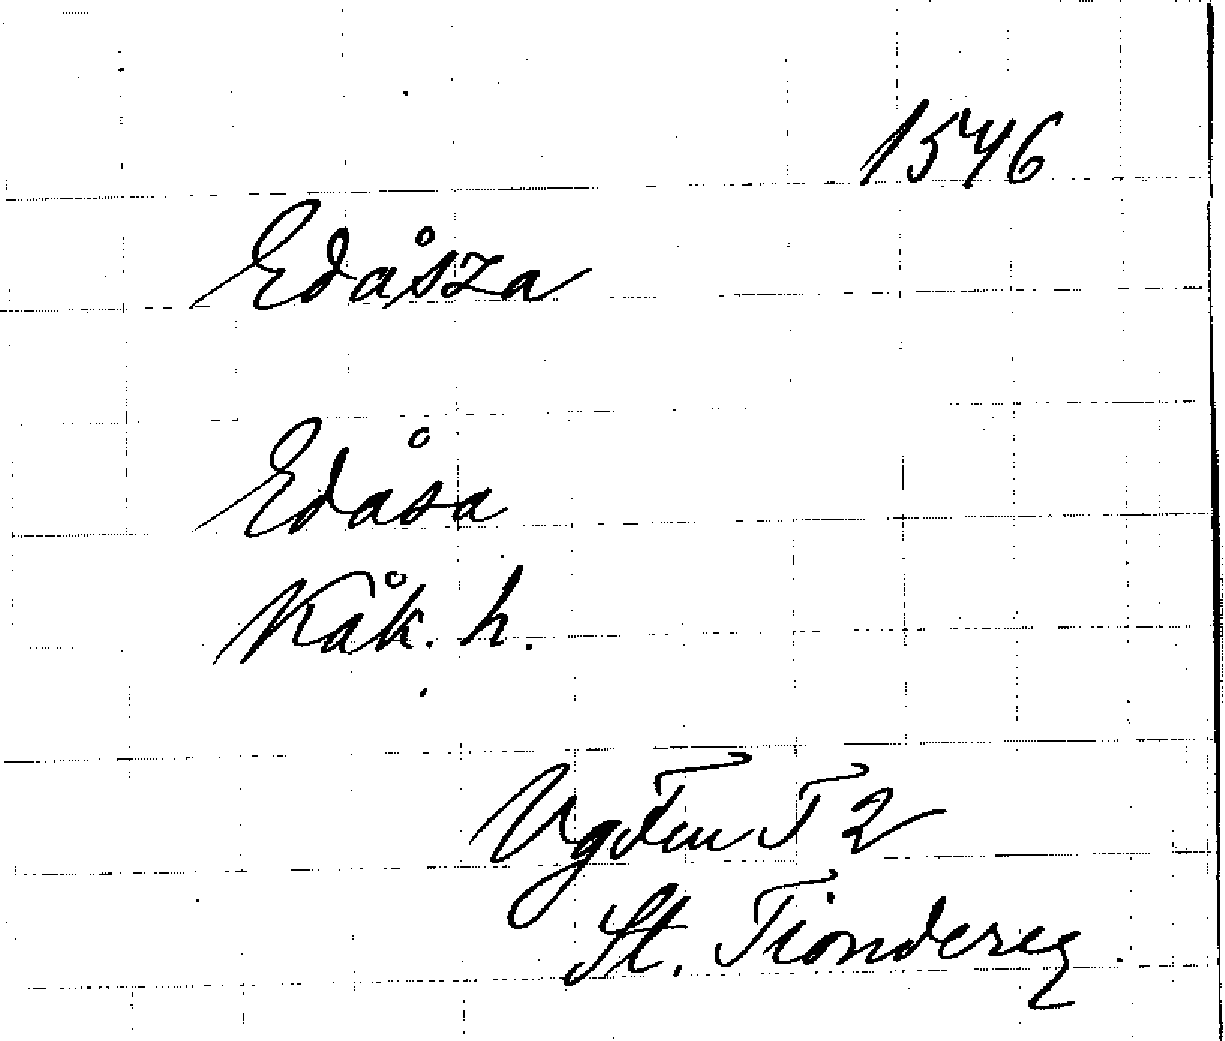 1546
Edåsza
Edåsa
Kåk. h.
Vg Tiu T 2
St. Tiondereg